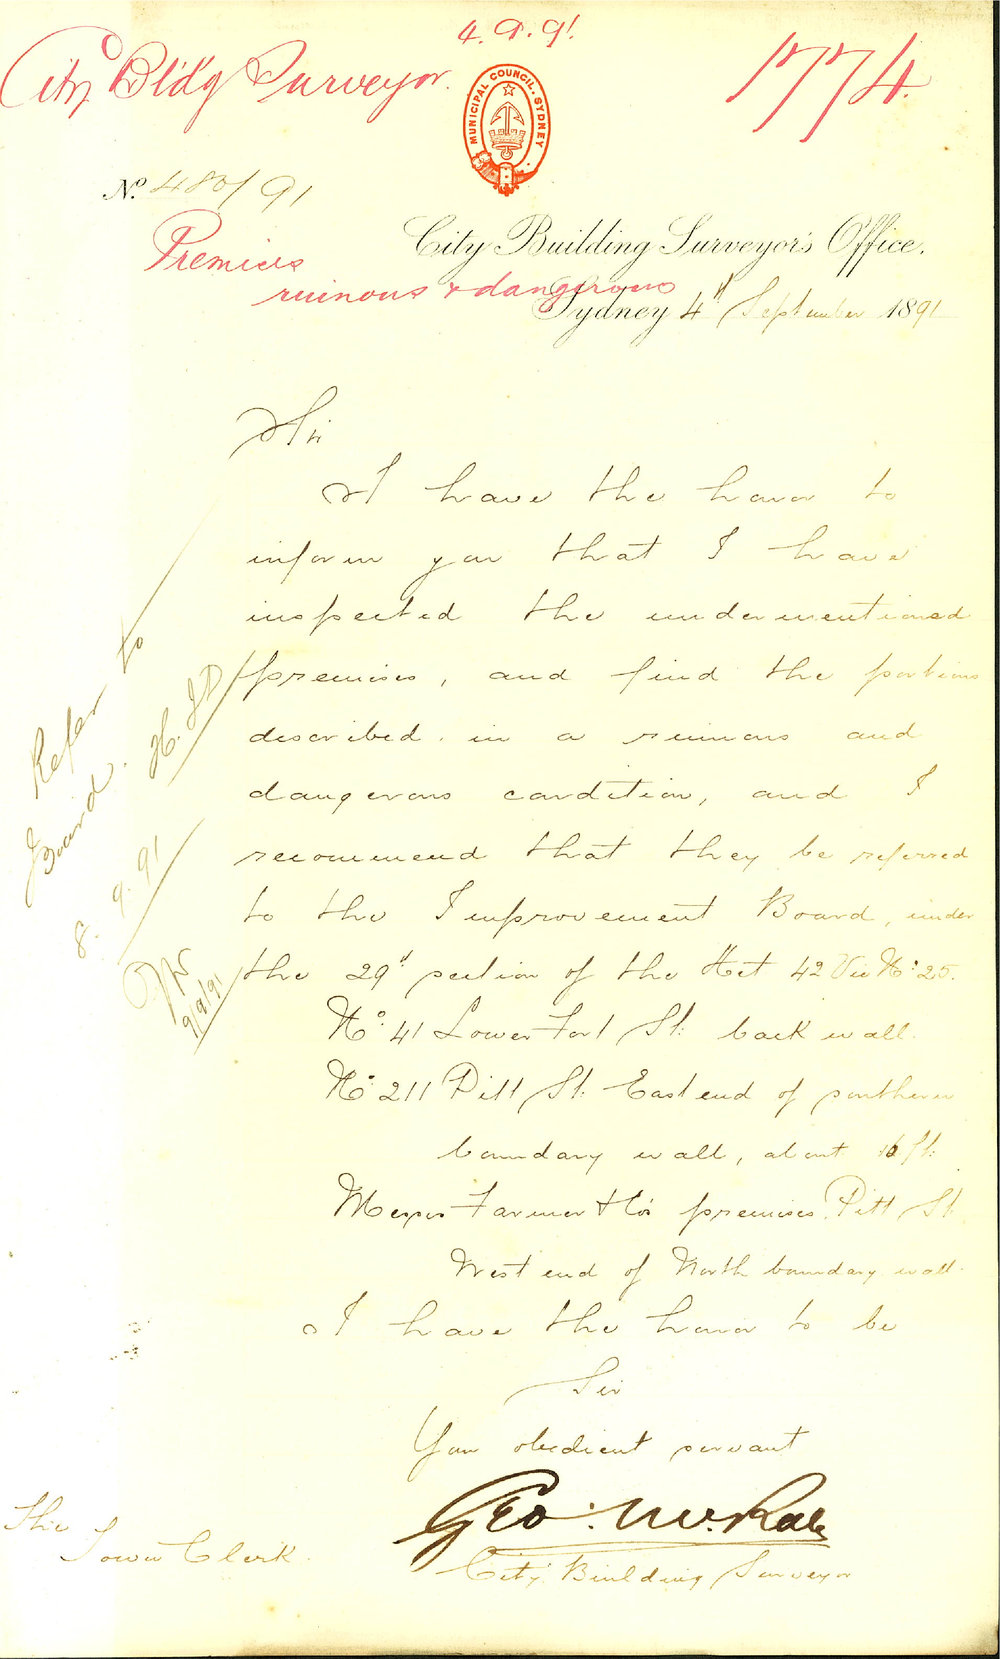 4.9.91.
City Bldg Surveyor.
1774.
MUNICIPAL COUNCIL. SYDNEY
No. 480/91
City Building Surveyor's Office.
Premises
ruinous & dangerous
Sydney 4th September 1891
Sir
I have the honor to
inform you that I have
inspected the undermentioned
premises, and find the portions
described in a ruinous and
dangerous condition, and I
recommend that they be referred
to the Improvement Board, under
the 29th section of the Act 42 Vic No. 25.
No. 41 Lower Fort St. back wall.
No. 211 Pitt St. East end of southern
boundary wall, about 16 ft.
Messrs Farmer & Co's premises Pitt St.
West end of North boundary wall.
I have the honor to be
Sir
Your obedient servant
Geo. McRae
City Building Surveyor
The
Town Clerk.
Refer to
Board.
8.9.91
9/9/91